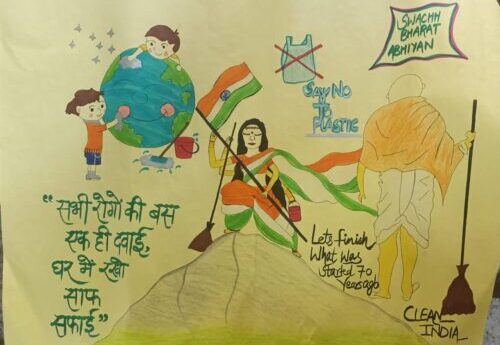 SWACHH
BHARAT
ABHIYAN
SAY NO
TO
PLASTIC
"सभी रोगों की बस
एक ही दवाई,
घर में रखो
साफ
सफाई"
Lets finish
What Was
Started 70
Years ago
CLEAN
INDIA